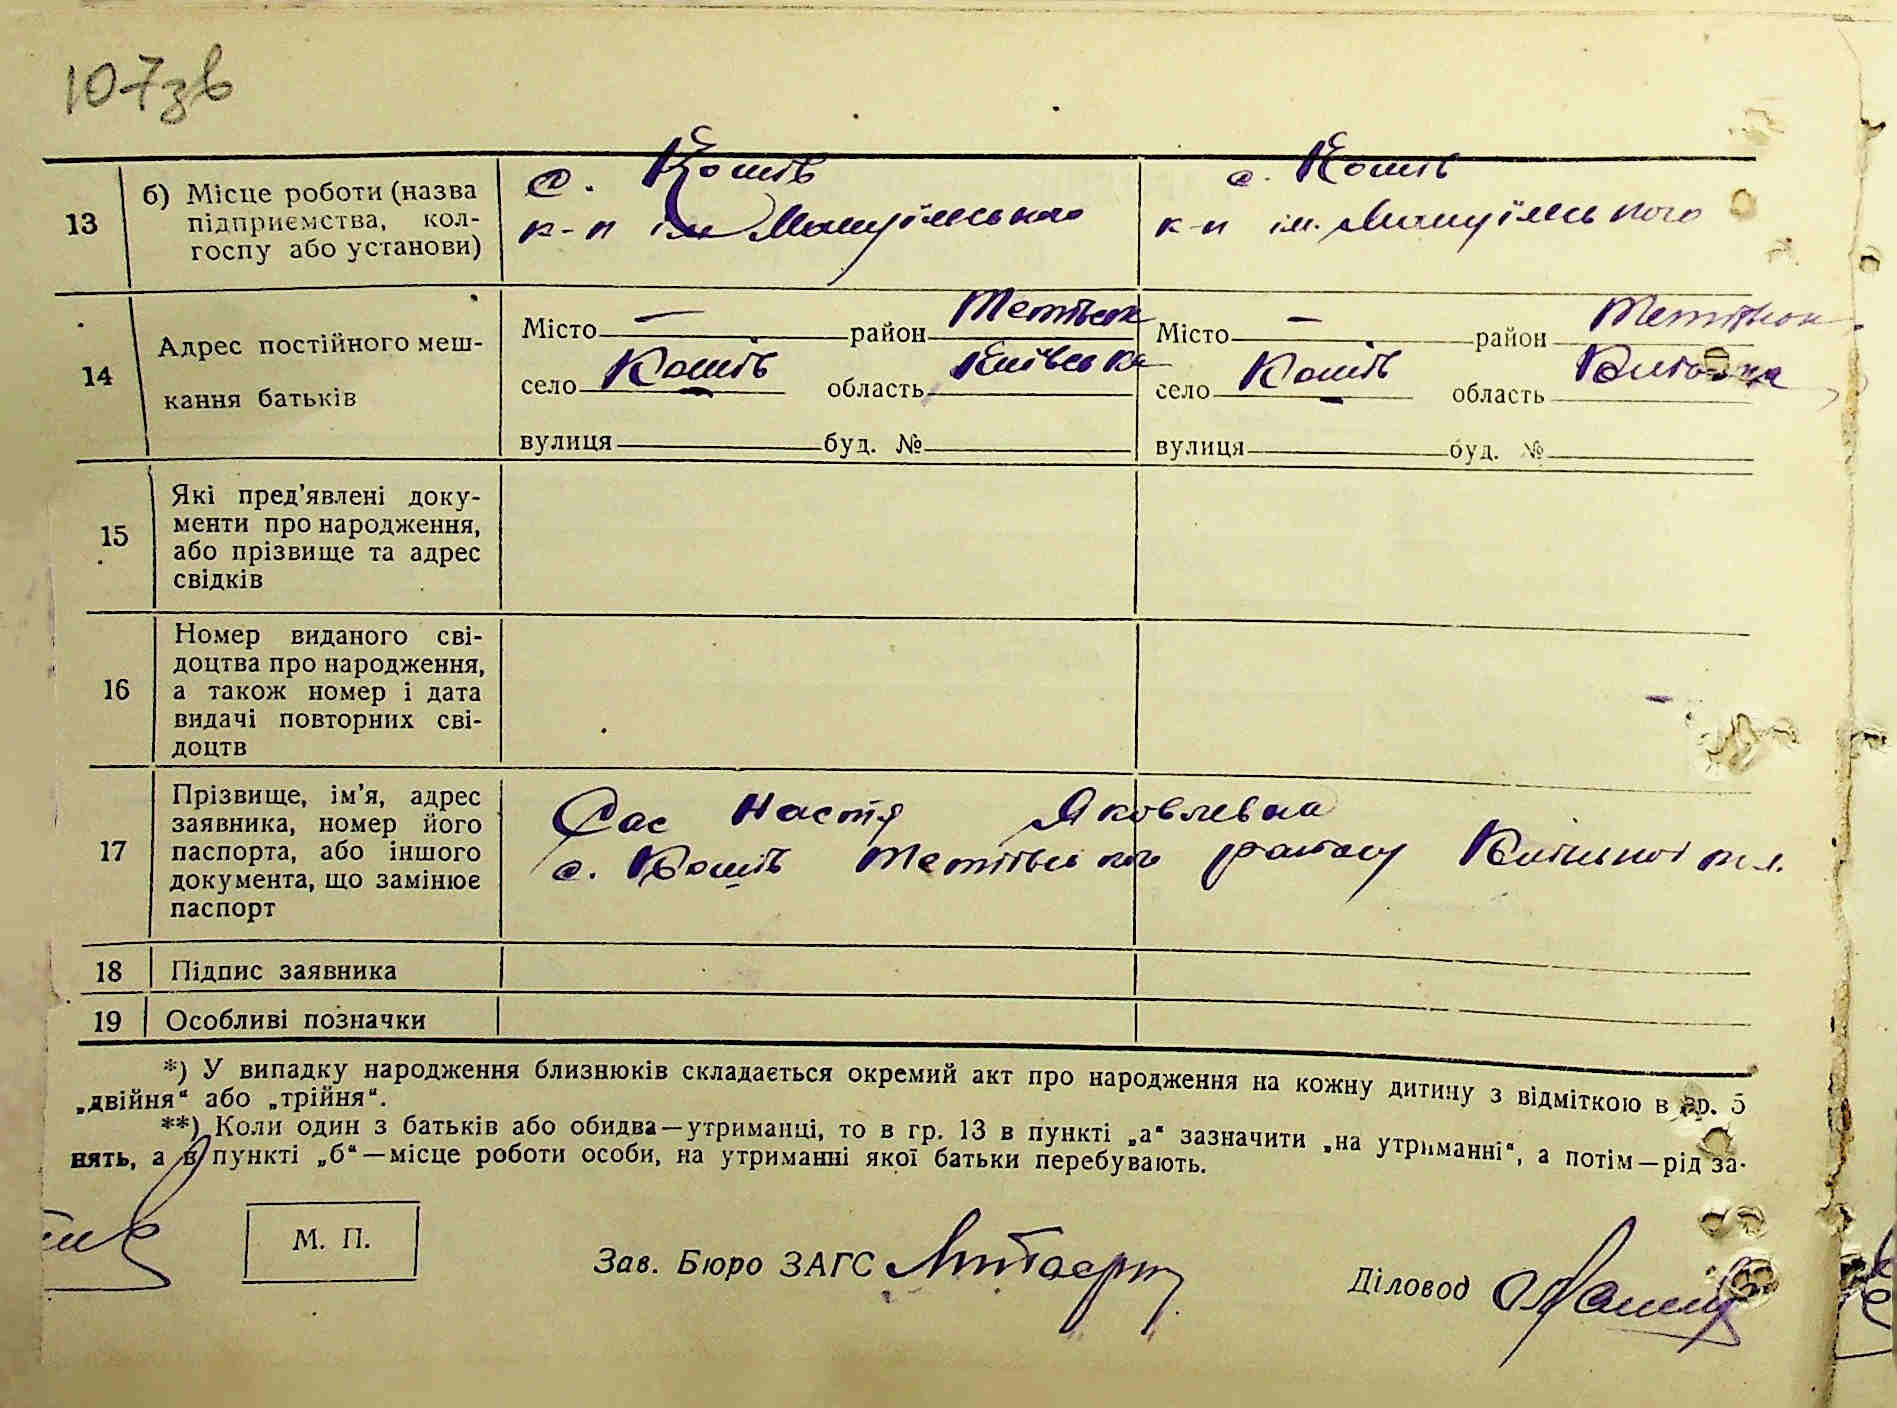 107зв
13
б) Місце роботи (назва
підприємства, кол-
госпу або установи)
с. Кошів
к-п ім Мануїлського
с. Кошів
к-п ім. Мануїлського
14
Адрес постійного меш-
кання батьків
Місто — район Тетіївськ
село Кошів область Київська
вулиця буд. №
Місто — район
село Кошів область
вулиця буд. №
15
Які пред’явлені доку-
менти про народження,
або прізвище та адрес
свідків
16
Номер виданого сві-
доцтва про народження,
а також номер і дата
видачі повторних сві-
доцтв
17
Прізвище, ім’я, адрес
заявника, номер його
паспорта, або іншого
документа, що замінює
паспорт
Сас Настя Яковлевна
с. Кошів Тетіївського району
18 Підпис заявника
19 Особливі позначки
*) У випадку народження близнюків складається окремий акт про народження на кожну дитину з відміткою в гр. 5
„двійня“ або „трійня“.
**) Коли один з батьків або обидва—утриманці, то в гр. 13 в пункті „а“ зазначити „на утриманні“, а потім—рід за-
нять, а в пункті „б“—місце роботи особи, на утриманні якої батьки перебувають.
М. П.
Зав. Бюро ЗАГС
Діловод